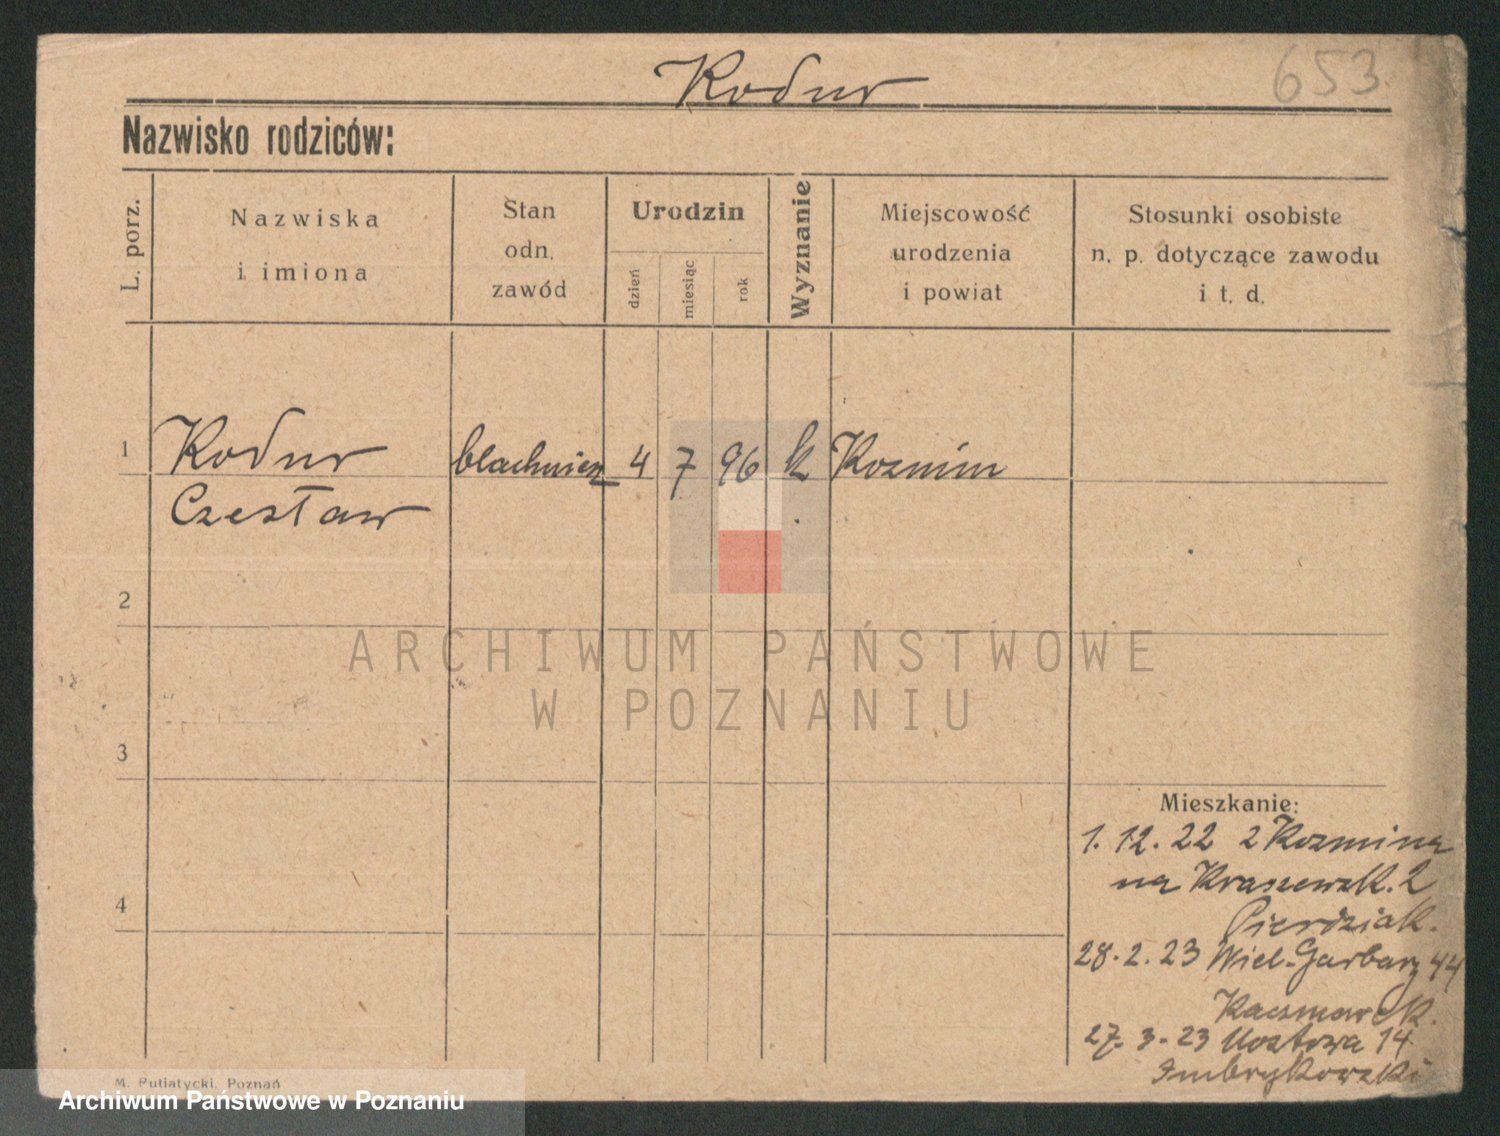 Kodur
653.
Nazwisko rodziców:
L. porz.
Nazwiska
i imiona
Stan
odn.
zawód
Urodzin
dzień
miesiąc
rok
Wyznanie
Miejscowość
urodzenia
i powiat
Stosunki osobiste
n. p. dotyczące zawodu
i t. d.
1 Kodur blachnierz 4 7 96 k Kozmin
Czesław
2
3
4
ARCHIWUM PAŃSTWOWE
W POZNANIU
Mieszkanie:
1. 12. 22 z Kozmina
na Kraszewsk. 2
Pierdziak.
28. 2. 23 Wiel-Garbary 44
Kaczmarek.
27. 3. 23 Mostowa 14
Imbrykowski
M. Putiatycki, Poznań
Archiwum Państwowe w Poznaniu